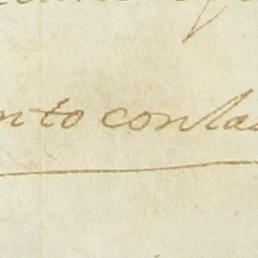 nto con la